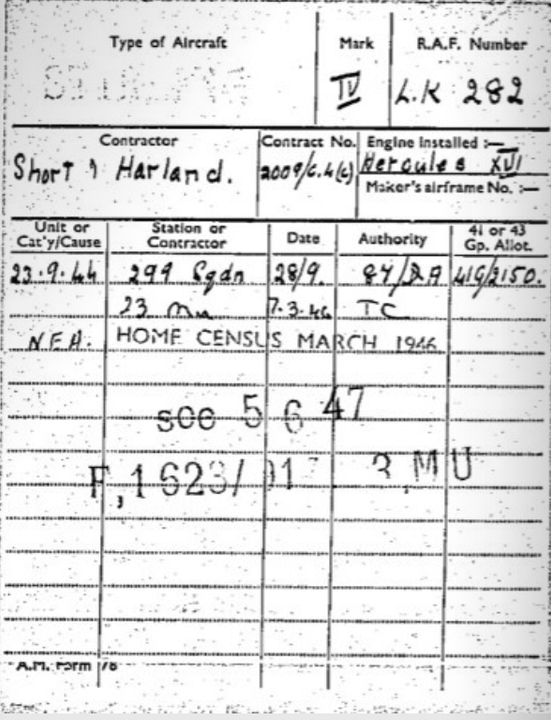 Type of Aircraft Mark R.A.F. Number
IV LK 282
Contractor Contract No. Engine installed :—
Short & Harland. 2009/C.4(c) Hercules XVI
Maker's airframe No. :—
Unit or Cat'y/Cause Station or Contractor Date Authority 41 or 43 Gp. Allot.
23.9.44 299 Sqdn 28/9. 84/DA 41G/2150.
23 MU 7.3.46 TC
N.E.A. HOME CENSUS MARCH 1946
soc 5 6 47
F,1623/ MU
A.M. Form 78